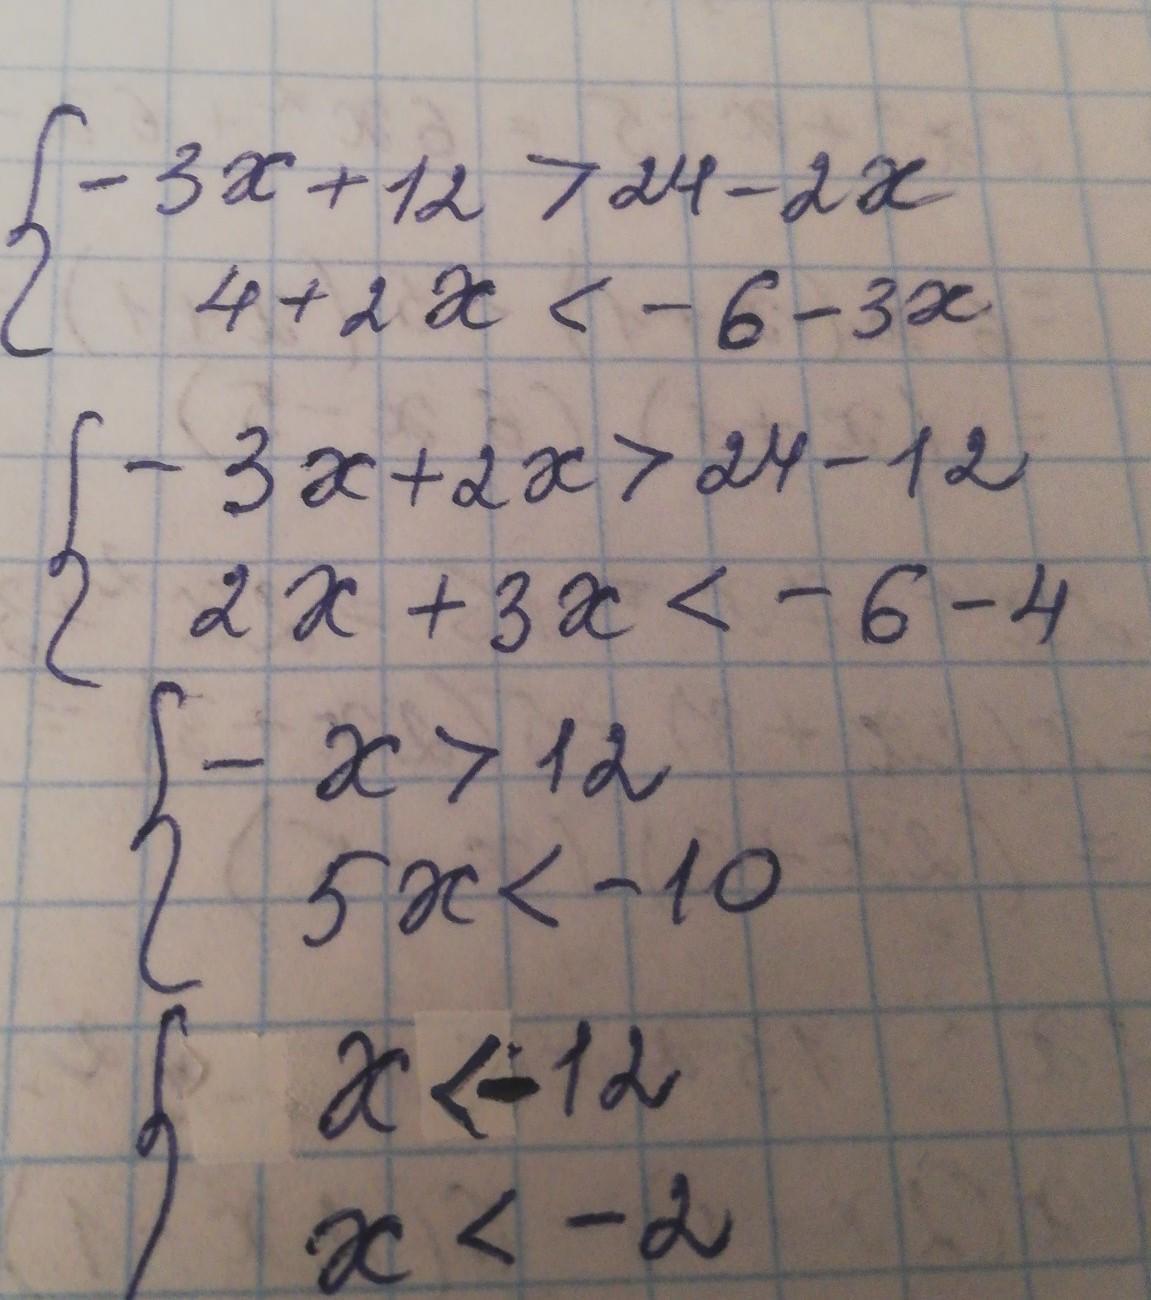 -3x+12 > 24-2x
4+2x < -6-3x
-3x+2x > 24-12
2x+3x < -6-4
-x > 12
5x < -10
x < -12
x < -2